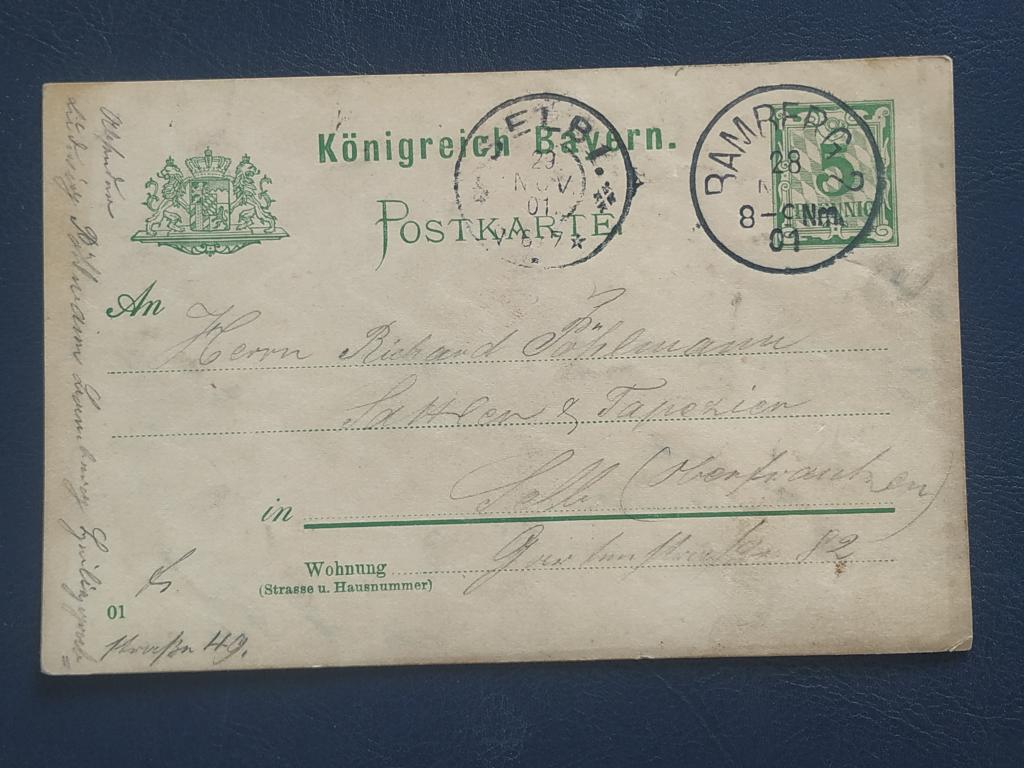 Königreich Bayern.
SELB I.
29
NOV.
01.
V 6-7
POSTKARTE
BAMBERG
28
N
8-9 Nm.
01
2
5
PFENNIG
An
Herrn Richard Pöhlmann
Sattler & Tapezier
in Selb (Oberfranken)
Wohnung Gartenstraße 82
(Strasse u. Hausnummer)
01
Absender
Ludwig Pöhlmann Bamberg
straße 49.